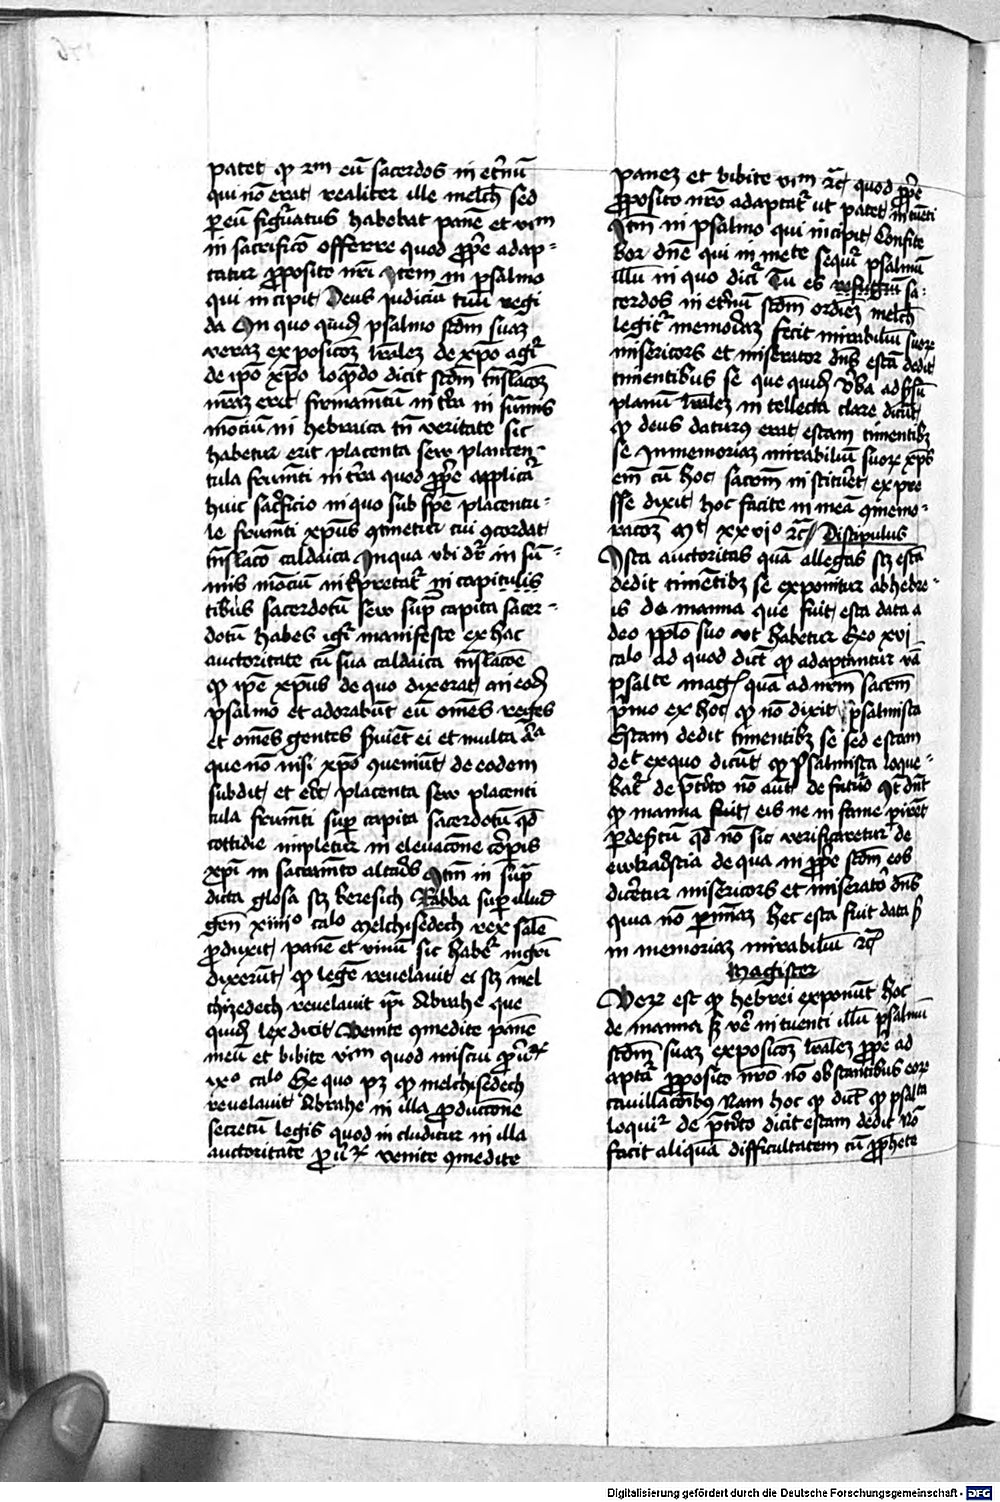 patet qp 2m eū sacerdos in et'nū
qui nō erat realiter ille melch sed
per eū figuratus habebat panē et vinum
in sacrificio offerre quod ppe adap-
tatur pposito nri Item in psalmo
qui incipit Deus judiciū tuū regi
da In quo quidē psalmo scdm suaz
veraz expositōez lralez de xpo agit
de ipo xpo loquēdo dicit scdm trīslacōz
nraz erit firmamtū in t'ra in sūmis
mōciū in hebraica tn veritate sic
habetur erit placenta seu placen-
tula frumti in t'ra quod ppe applicat
huic sacrficio in quo sub spē placentu-
le frumti xpus 9tinetur cui 9cordat
trīslacō caldaica In qua ubi dr in sū-
mis mōciū int'pretat' in capitulis
tibus sacerdotū seu sup capita sacer-
dotū habes igr manifeste ex hac
auctoritate cū sua caldaica trīslacōe
qp ipē xpus de quo dixerat in eodē
psalmo et adorabūt eū omēs reges
et omēs gentes suiēt ei et multa alia
que nō nisi xpo 9ueniūt de eodem
subdit et erit placenta seu placenti
tula frumti sup capita sacerdotū qd
cottidie impletur in elevacōne corpis
xpi in sacramto altaris Itm in sup
dicta glosa scz beresich Rabba sup illud
gen xiiiio calo Melchisedech rex salē
produxit panē et vinū sic habet mgri
dixerūt qp legē revelavit ei scz mel
chizedech revelavit ipi Abrahe que
quidē lex dicit Venite 9medite panē
meū et bibite vinm quod miscui pver
ixo calo Ex quo pz qp melchisedech
revelavit Abrahe in illa pductōne
secretū legis quod includitur in illa
auctoritatē pver venite 9medite
panez et bibite vinm 2c quod ppe
pposito nro adaptat' ut patet intuēti
Itm in psalmo qui incipit Confite
bor dne qui in mete sequit' psalmū
illū in quo dicit' Tu es sa-
cerdos in et'nū scdm ordiez melch
legit' memoriaz fecit mirabiliū suorz
misericors et miserator dns escā dedit
timentibus se que quidē v'ba ad
planū lralez intellectū clare dicūt
qp deus daturus erat escam timentibz
se In memoriaz mirabiliū suorz xpus
em cū hoc sacrm instituēt expre
sse dixit hoc facite in meā 9memo-
racōz Mt xxvio 2c Discipulus
Ista auctoritas quā allegas scz escā
dedit timētibz se exponitur ab hebre-
is de manna que fuit esca data a
deo pplo suo ut habetur Exo xvi
calo ad quod dict' qp adaptantur
psalte magr quā ad nrm sacrm
pmo ex hoc qp nō dixit psalmista
Escam dedit timentibz se sed escam
det ex quo dicūt qp Psalmista loque-
bat' de ptito nō aūt de futuro
qp manna fuit eis ne in fame pirēt
qd nō sic verificaretur de
eukaristia de qua in ppe scdm eos
dicetur misericors et miserator dns
quia nō pimaz hec esca fuit data
in memoriaz mirabiliū 2c
Magister
Verz est qp hebrei exponūt hoc
de manna s; vere intuenti illū psalmū
scdm suaz expositōz lralez ppe ad
aptat' pposito nro nō obstantibus eorz
cavillacōibus Nam hoc qp dict' qp psalta
loquit' de ptito dicit escam dedit nō
facit aliquā difficultatem cū pphete
Digitalisierung gefördert durch die Deutsche Forschungsgemeinschaft - DFG